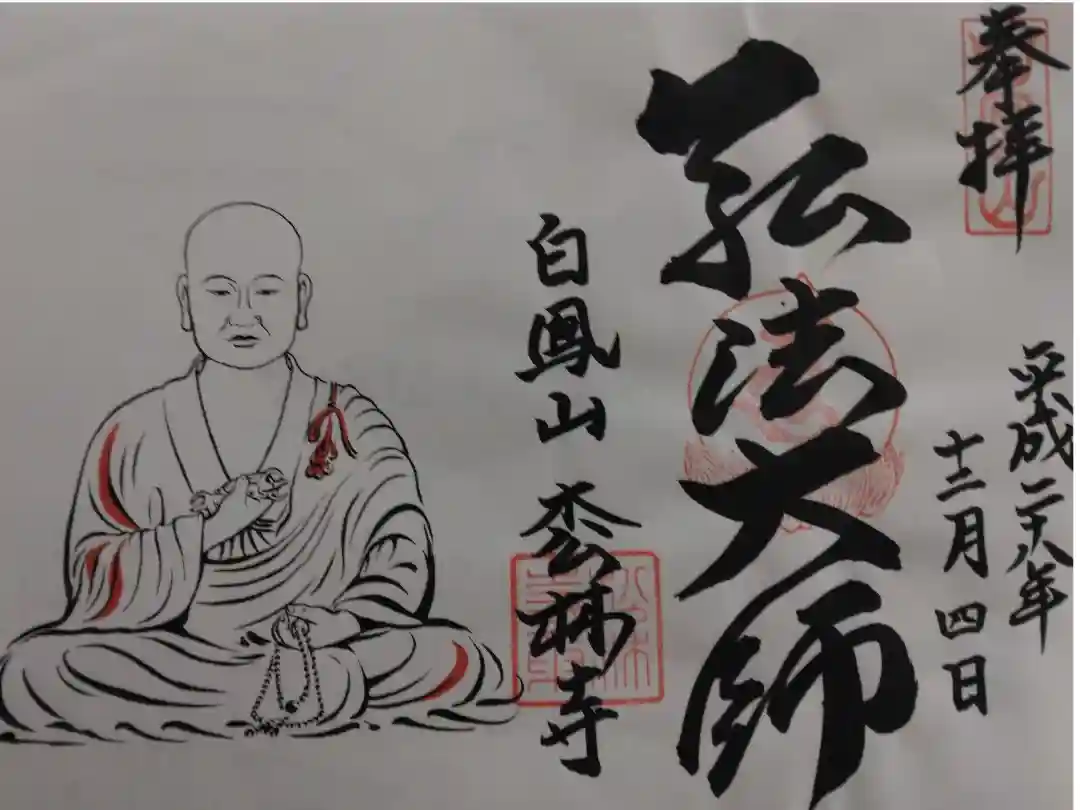 奉拝
平成二十八年
十二月四日
弘法大師
白鳳山 枩林寺